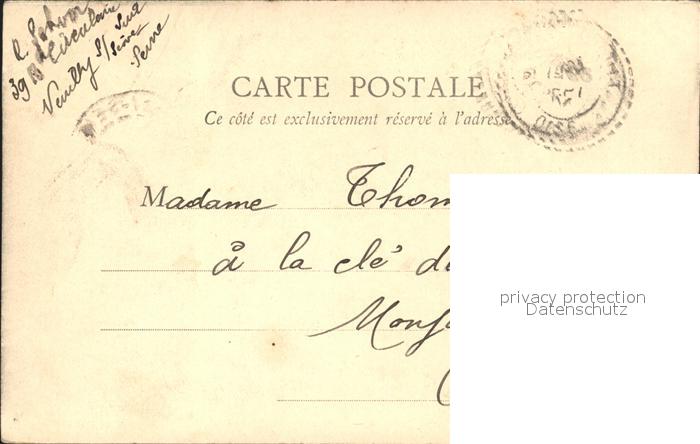 39 Bd
Neuilly s/ Seine
Seine
CARTE POSTALE
Ce côté est exclusivement réservé à l'adresse
OISE
Madame Thom
à la clé d
Monf
privacy protection
Datenschutz